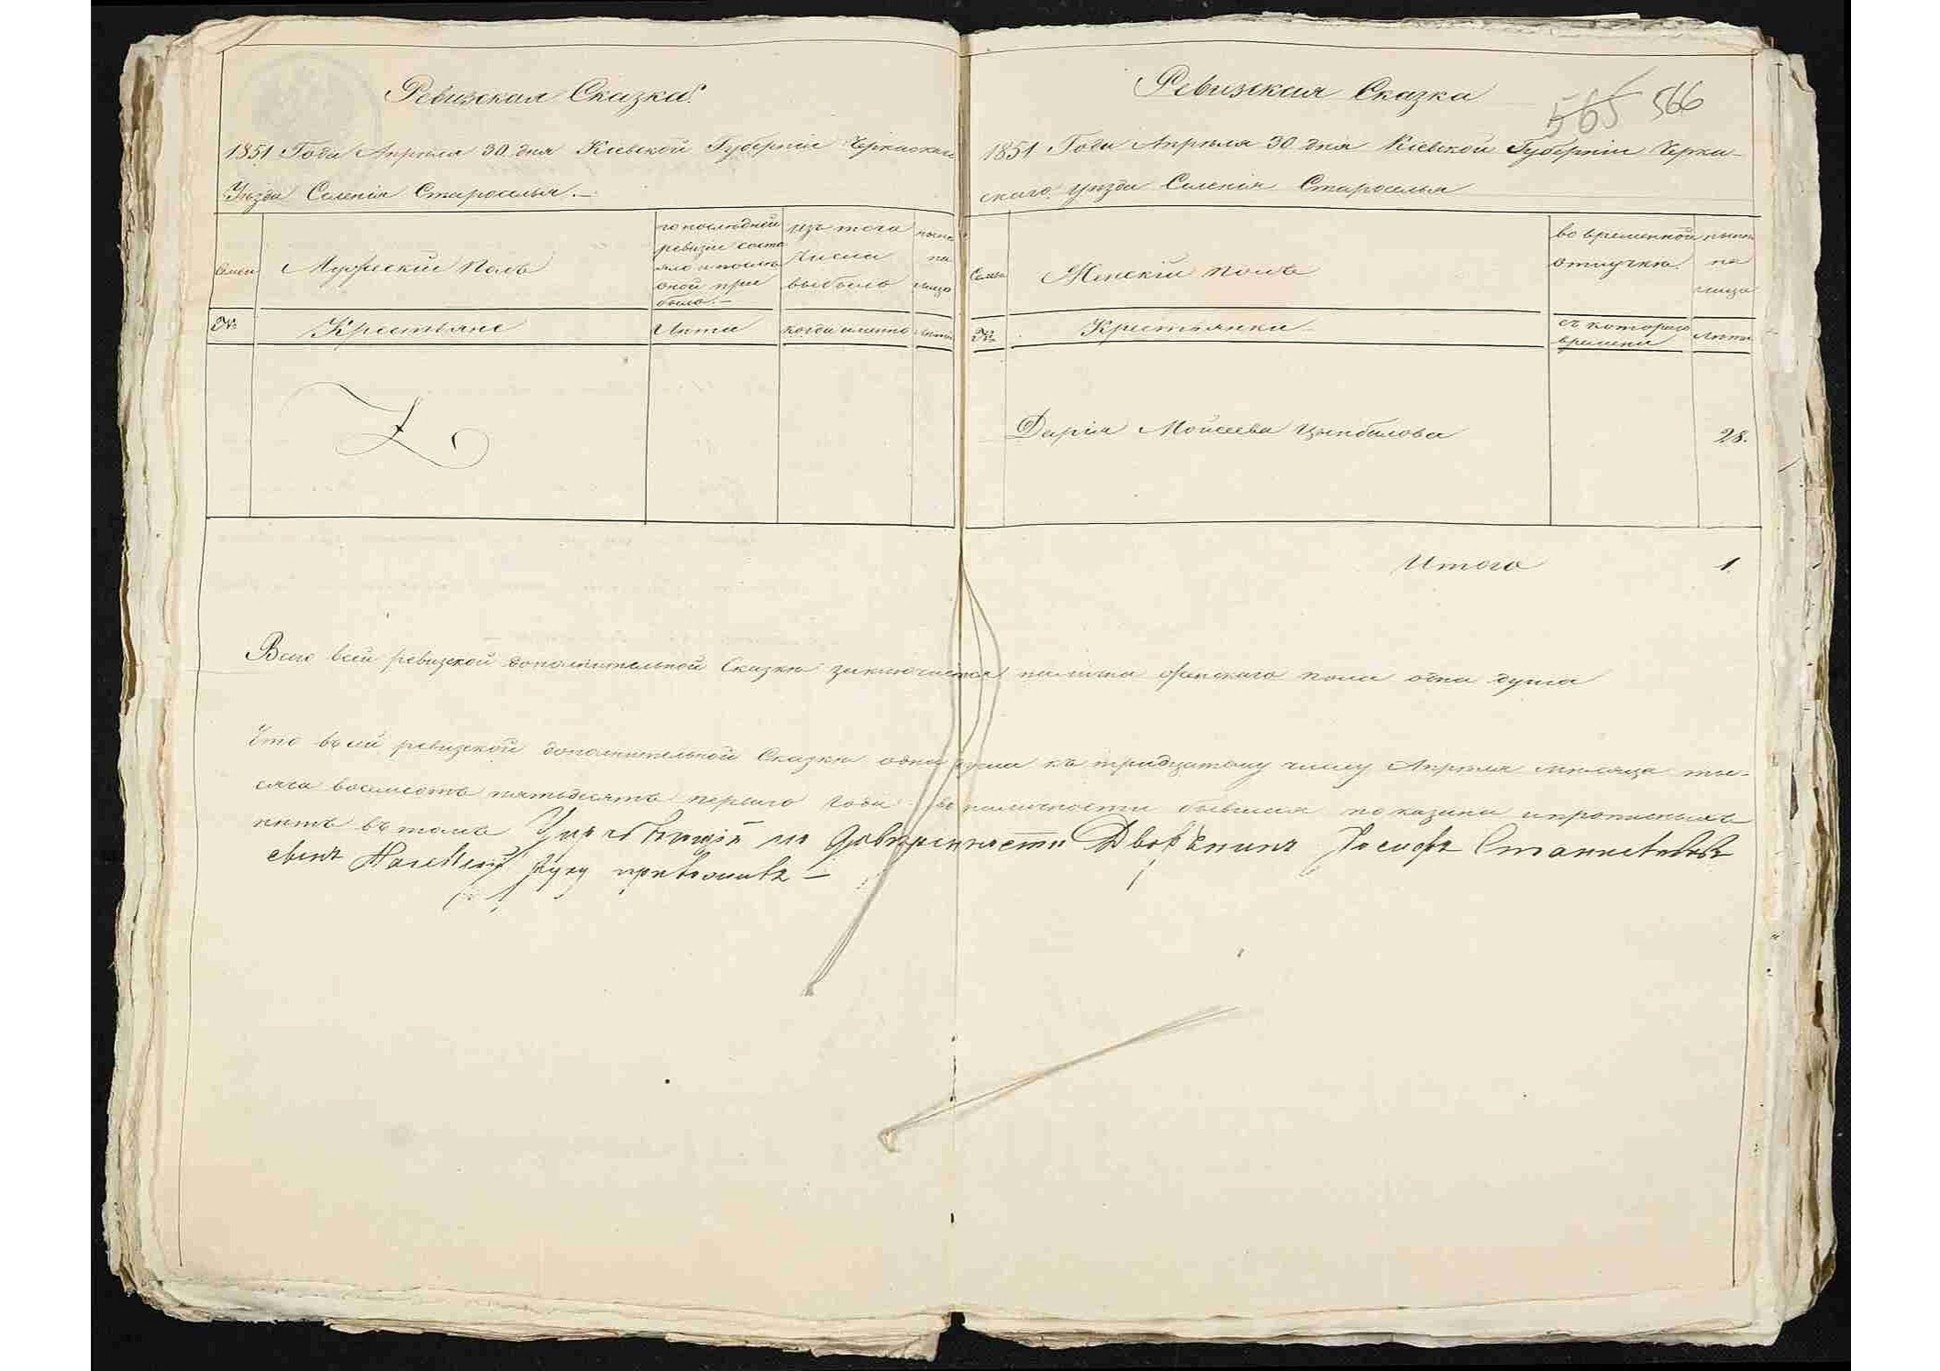 Ревизская Сказка.
1851 Года Апреля 30 дня Кіевской Губерніи Черкаскаго
Уѣзда Селенія Староселья.—
Семьи
Мужескій Полъ
по послѣдней
ревизіи состо
яло и послѣ
оной при
было.—
изъ того
числа
выбыло
нынѣ
на
лицо
№
Крестьяне
Лѣта
когда именно
лѣта
Ревизская Сказка
565 566
1851 Года Апрѣля 30 дня Кіевской Губерніи Черка-
скаго уѣзда Селенія Староселья
Семьи
Женскій полъ
во временной
отлучкѣ.
нынѣ
на
лицо
№
Крестьянки
съ котораго
времени
Лѣта
Дарія Мойсеева 28.
Итого 1.
Всего всей ревизской дополнительной Сказкѣ заключается налицо женскаго пола одна душа
Что въ сей ревизской дополнительной Сказкѣ одна душа къ тридцатому числу Апрѣля мѣсяца ты-
сяча восемьсотъ пятьдесятъ перваго года въ наличности бывшая показана и прописныхъ
нѣтъ въ томъ по довѣренности Дворянинъ Іосифъ Станиславовъ
сынъ руку приложилъ —